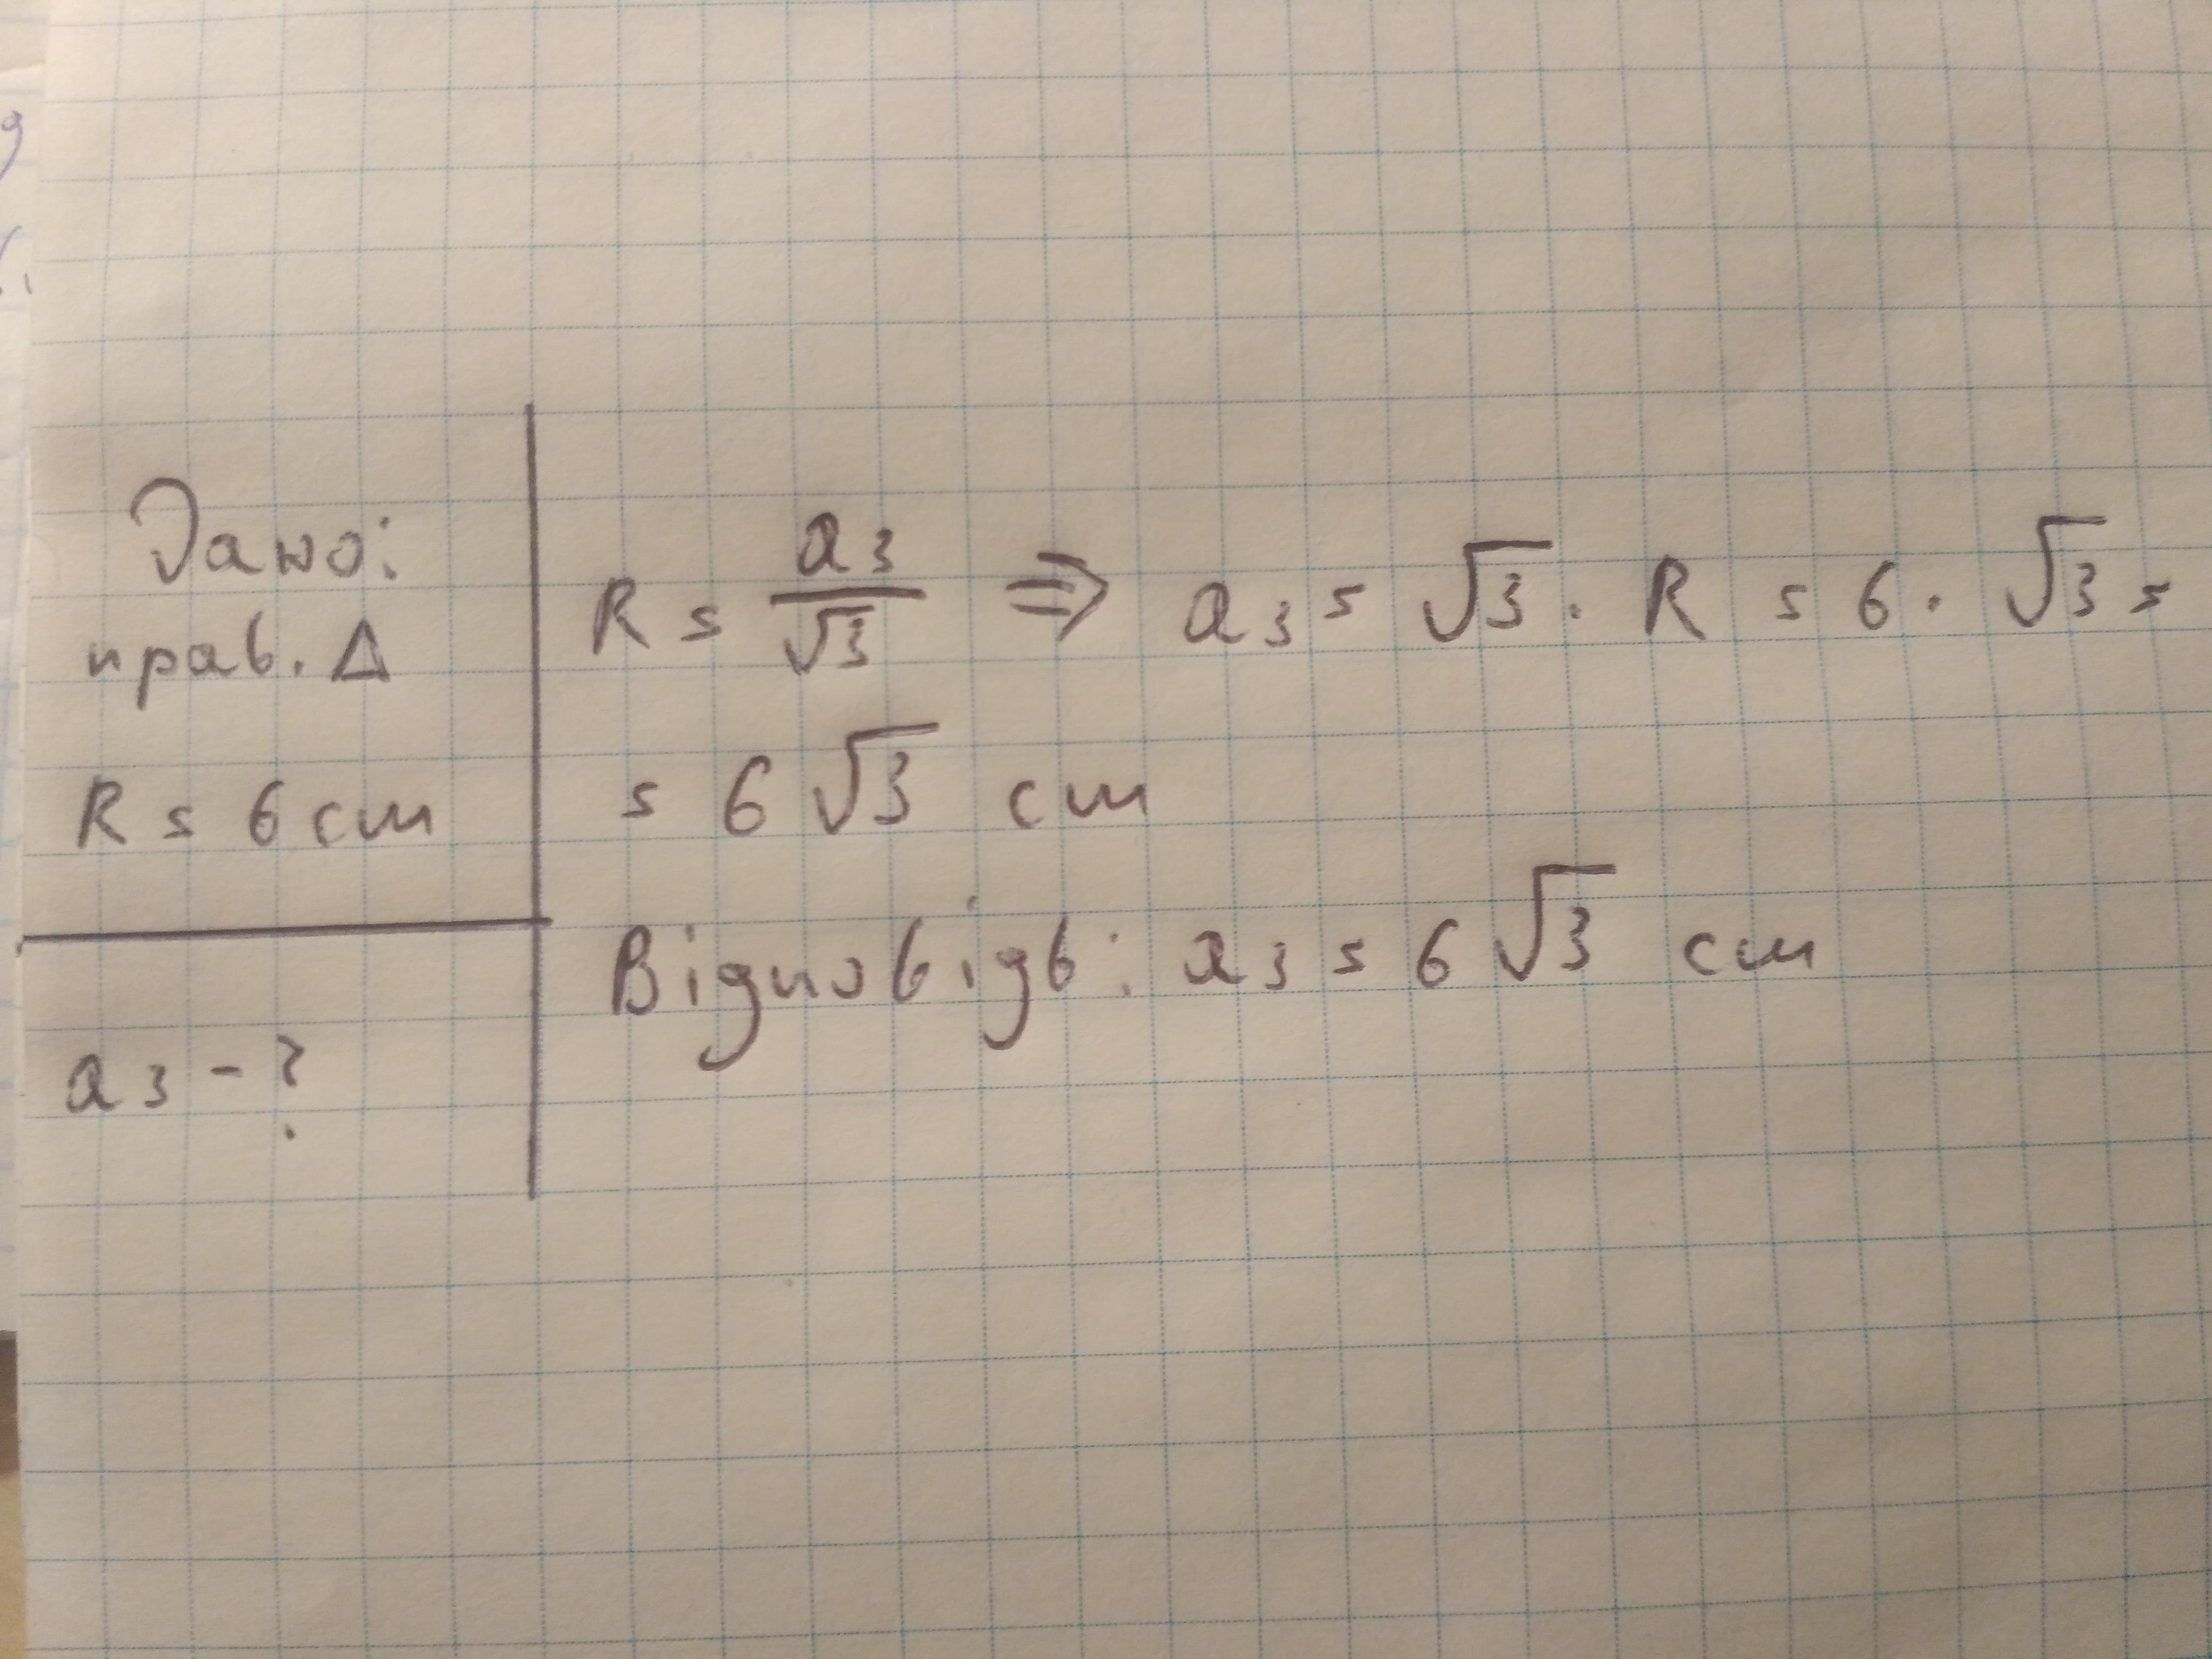 Дано:
прав. Δ
R = 6 см
a₃ - ?
R = a₃/√3 ⇒ a₃ = √3 · R = 6 · √3 =
= 6√3 см
Відповідь: a₃ = 6√3 см